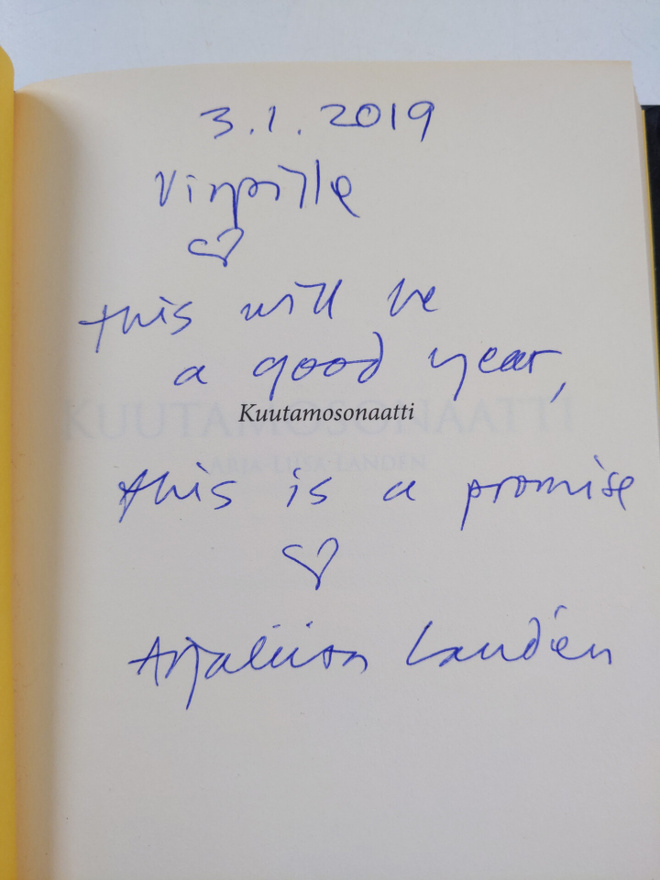 3.1.2019
Virpille
this will be
a good year,
Kuutamosonaatti
KUUTAMOSONAATTI
ARJA-LIISA LANDÉN
this is a promise
Arjaliisa Landén